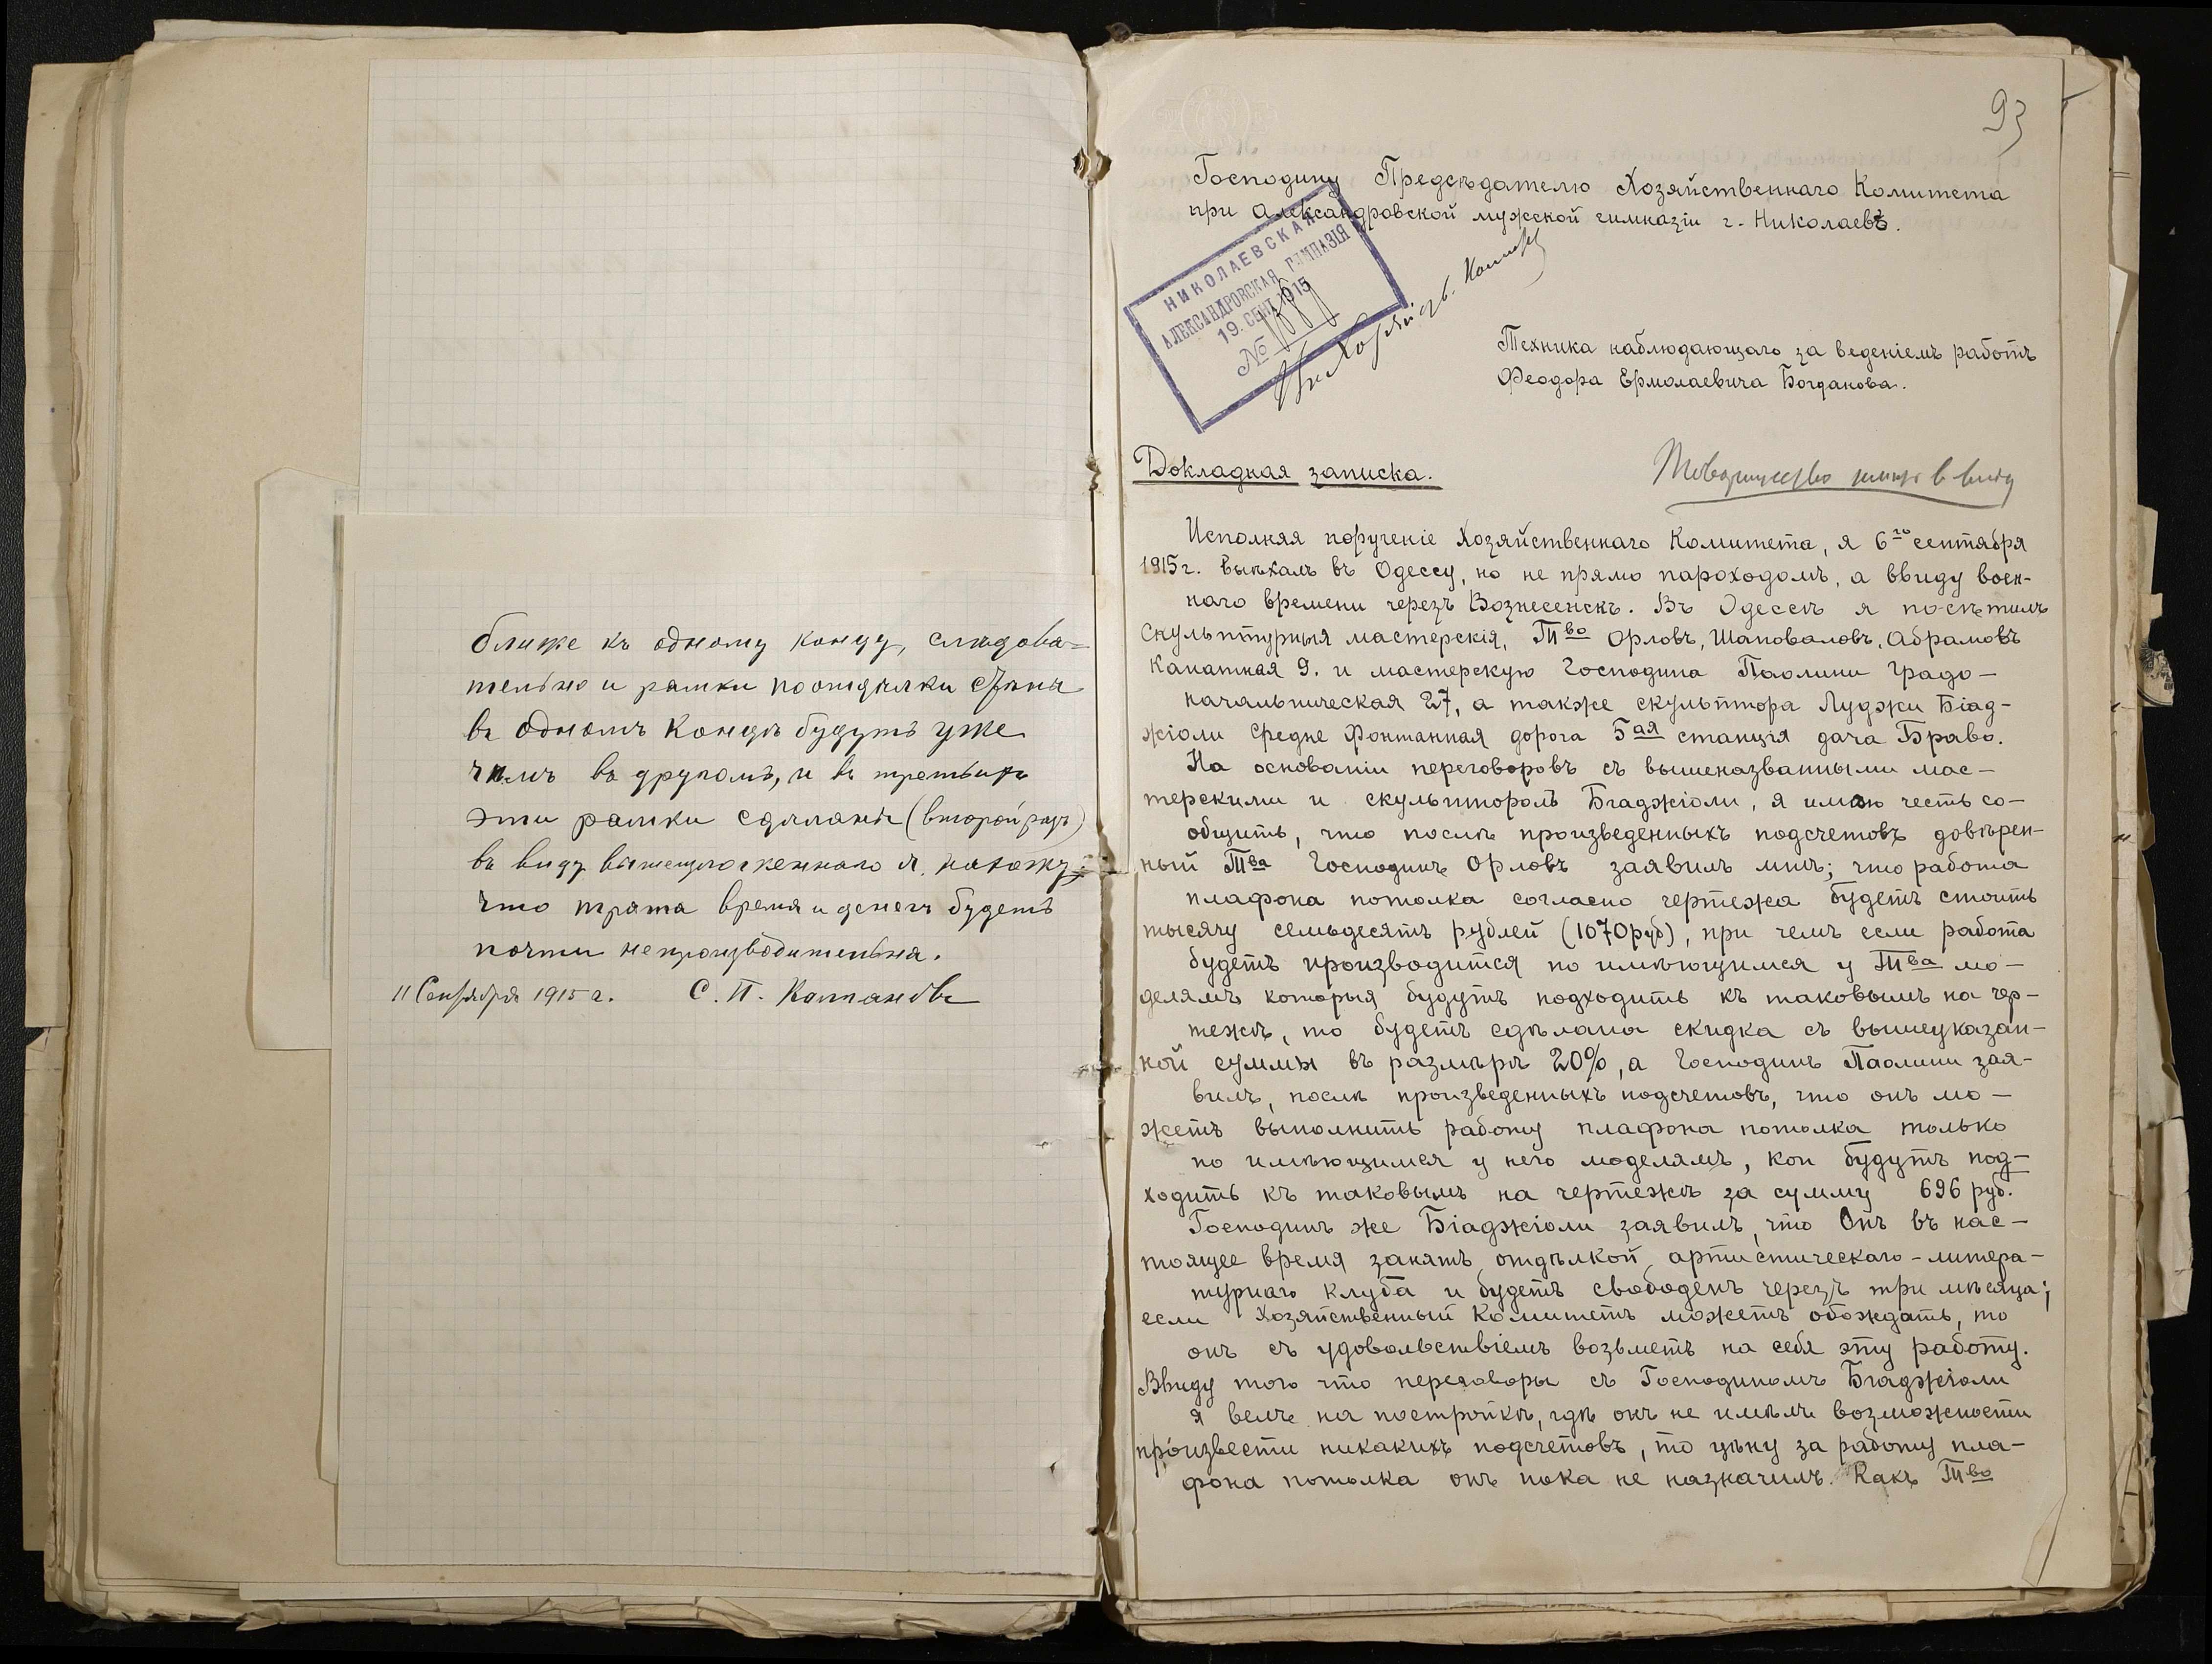 ближе къ одному концу, слѣдова=
тельно и рамки по отдѣлки стѣнъ
въ одномъ концѣ будутъ уже
чѣмъ въ другомъ, и въ третьихъ
эти рамки сдѣланы (второй разъ)
въ виду вышеизложеннаго я нахожу,
что трата время и денегъ будетъ
почти непроизводительна.
11 Сентября 1915 г. С. П.
93
Господину Предсѣдателю Хозяйственнаго Комитета
при Александровской мужской гимназіи г. Николаевѣ.
НИКОЛАЕВСКАЯ
АЛЕКСАНДРОВСКАЯ ГИМНАЗІЯ
19. СЕНТ 1915
№
Техника наблюдающаго за веденіемъ работъ
Феодора Ермолаевича Богданова.
Докладная записка.
Товарищество въ виду
Исполняя порученіе Хозяйственнаго Комитета, я 6го сентября
1915 г. выѣхалъ въ Одессу, но не прямо пароходомъ, а ввиду воен-
наго времени черезъ Вознесенскъ. Въ Одессѣ я посѣтилъ
скульптурныя мастерскія, Тво Орловъ, Шаповаловъ, Абрамовъ
Канатная 9. и мастерскую Господина Паолини Градо-
начальническая 27, а также скульптора Луджи Біад-
жіоли Средне Фонтанная дорога 5ая станція дача Браво.
На основаніи переговоровъ съ вышеназванными мас-
терскими и скульпторомъ Біаджіоли, я имѣю честь со-
общить, что послѣ произведенныхъ подсчетовъ довѣрен-
ный Тва Господинъ Орловъ заявилъ мнѣ; что работа
плафона потолка согласно чертежа будетъ стоить
тысячу семьдесятъ рублей (1070 руб), при чемъ если работа
будетъ производится по имѣющимся у Тва мо-
делямъ которыя будутъ подходить къ таковымъ на чер-
тежѣ, то будетъ сдѣлана скидка съ вышеуказан-
ной суммы въ размѣрѣ 20%, а Господинъ Паолини зая-
вилъ, послѣ произведенныхъ подсчетовъ, что онъ мо-
жетъ выполнить работу плафона потолка только
по имѣющимся у него моделямъ, кои будутъ под-
ходить къ таковымъ на чертежѣ за сумму 696 руб.
Господинъ же Біаджіоли заявилъ, что Онъ въ нас-
тоящее время занятъ отдѣлкой артистическаго-литера-
турнаго клуба и будетъ свободенъ черезъ три мѣсяца;
если Хозяйственный Комитетъ можетъ обождать, то
онъ съ удовольствіемъ возьметъ на себя эту работу.
Ввиду того что переговоры съ Господиномъ Біаджіоли
я велъ на постройкѣ, гдѣ онъ не имѣлъ возможности
произвести никакихъ подсчетовъ, то цѣну за работу пла-
фона потолка онъ пока не назначилъ. Какъ Тво